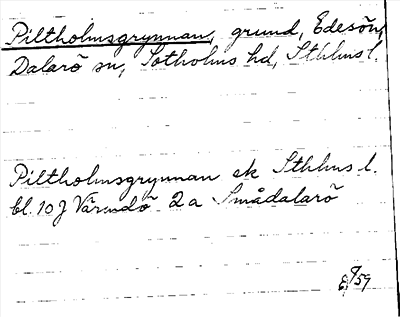 Piltholmsgrynnan, grund, Edesön,
Dalarö sn, Sotholms hd, Sthlms l.
Piltholmsgrynnan ek Sthlms l.
bl. 10J Värmdö 2a Smådalarö
59